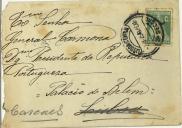 Exmo Senhor
General Carmona
Dgmo Presidente da Republica
Portuguesa
Palacio de Belem
Cascaes Lisboa